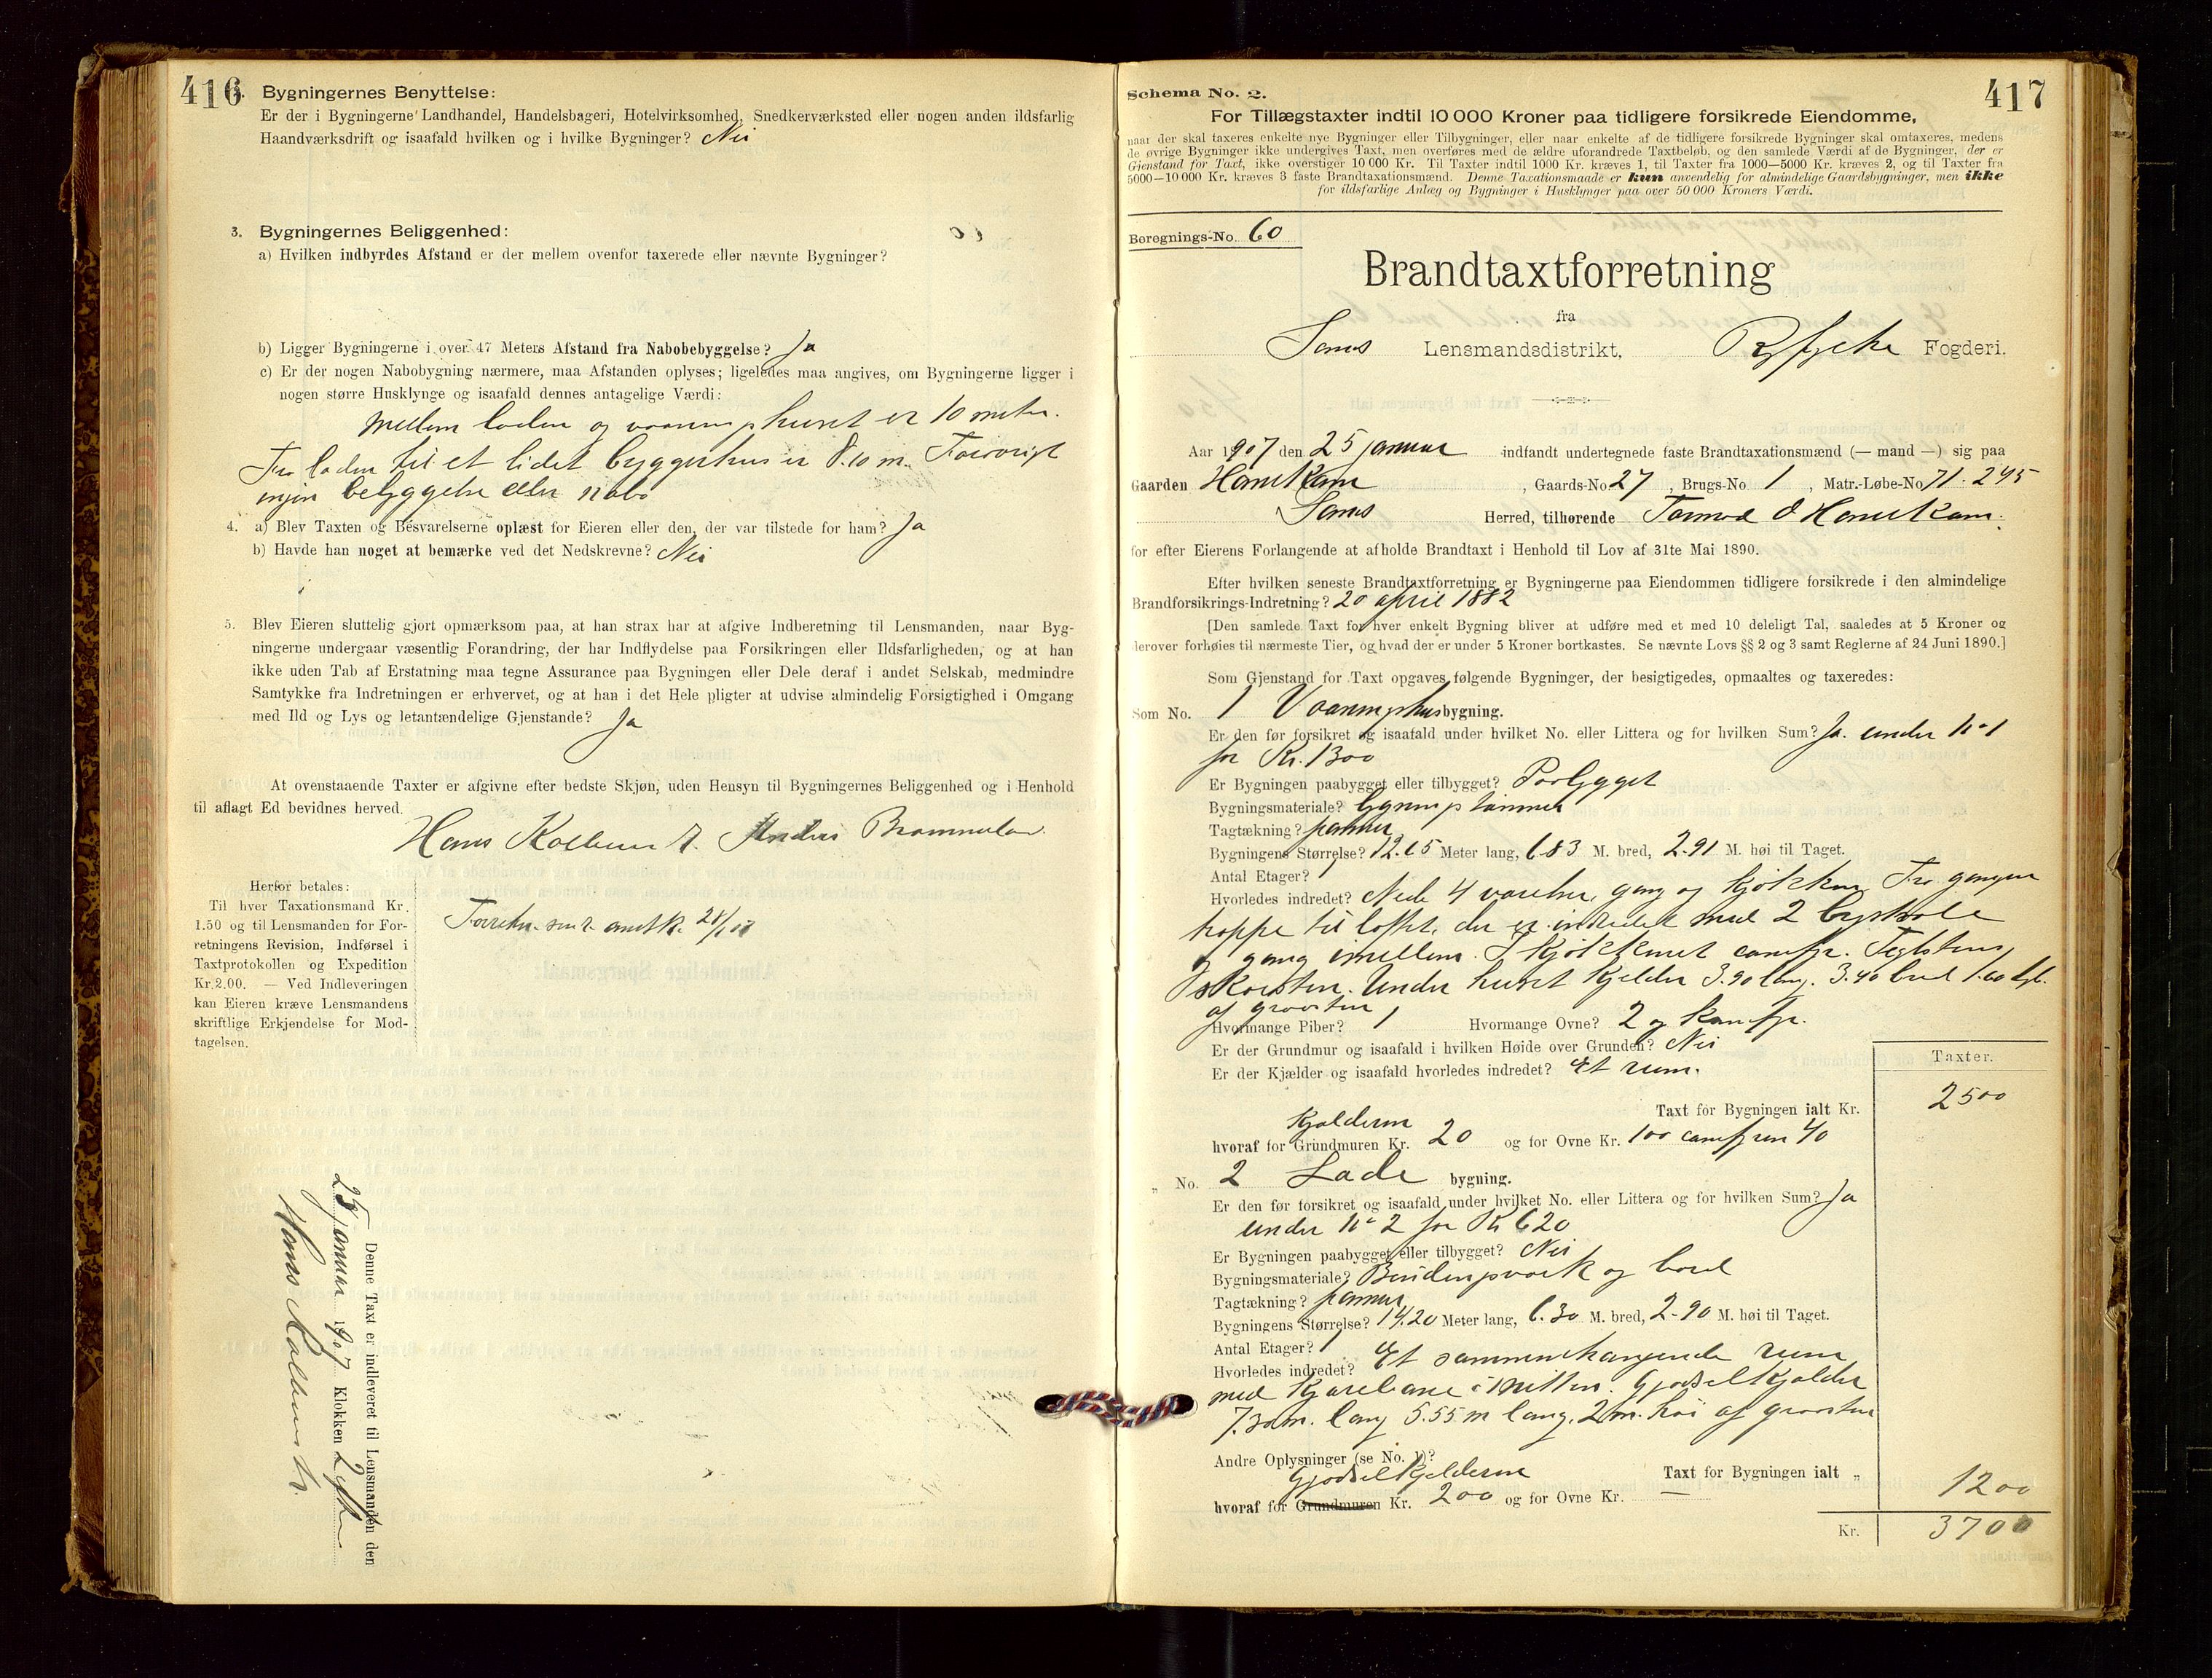 416
2. Bygningernes Benyttelse:
Er der i Bygningerne Landhandel, Handelsbageri, Hotelvirksomhed, Snedkerværksted eller nogen anden ildsfarlig
Haandværksdrift og isaafald hvilken og i hvilke Bygninger? Nei
3. Bygningernes Beliggenhed:
a) Hvilken indbyrdes Afstand er der mellem ovenfor taxerede eller nævnte Bygninger?
b) Ligger Bygningerne i over 47 Meters Afstand fra Nabobebyggelse? Ja
c) Er der nogen Nabobygning nærmere, maa Afstanden oplyses; ligeledes maa angives, om Bygningerne ligger i
nogen større Husklynge og isaafald dennes antagelige Værdi:
Mellem laden og vaaningshuset er 10 meter.
Fra laden til et lidet byggerhus er 8.10 m. Forøvrigt
ingen bebyggelse eller nabo
4. a) Blev Taxten og Besvarelserne oplæst for Eieren eller den, der var tilstede for ham? Ja
b) Havde han noget at bemærke ved det Nedskrevne? Nei
5. Blev Eieren sluttelig gjort opmærksom paa, at han strax har at afgive Indberetning til Lensmanden, naar Byg-
ningerne undergaar væsentlig Forandring, der har Indflydelse paa Forsikringen eller Ildsfarligheden, og at han
ikke uden Tab af Erstatning maa tegne Assurance paa Bygningen eller Dele deraf i andet Selskab, medmindre
Samtykke fra Indretningen er erhvervet, og at han i det Hele pligter at udvise almindelig Forsigtighed i Omgang
med Ild og Lys og letantændelige Gjenstande? Ja
At ovenstaaende Taxter er afgivne efter bedste Skjøn, uden Hensyn til Bygningernes Beliggenhed og i Henhold
til aflagt Ed bevidnes herved.
Hans Kolbens Anders
Herfor betales:
Til hver Taxationsmand Kr.
1.50 og til Lensmanden for For-
retningens Revision, Indførsel i
Taxtprotokollen og Expedition
Kr. 2.00. — Ved Indleveringen
kan Eieren kræve Lensmandens
skriftlige Erkjendelse for Mod-
tagelsen.
Denne Taxt er indleveret til Lensmanden den
25 januar 1907 Klokken 2 efter
417
Schema No. 2.
For Tillægstaxter indtil 10 000 Kroner paa tidligere forsikrede Eiendomme,
naar der skal taxeres enkelte nye Bygninger eller Tilbygninger, eller naar enkelte af de tidligere forsikrede Bygninger skal omtaxeres, medens
de øvrige Bygninger ikke undergives Taxt, men overføres med de ældre uforandrede Taxtbeløb, og den samlede Værdi af de Bygninger, der er
Gjenstand for Taxt, ikke overstiger 10 000 Kr. Til Taxter indtil 1000 Kr. kræves 1, til Taxter fra 1000—5000 Kr. kræves 2, og til Taxter fra
5000—10 000 Kr. kræves 3 faste Brandtaxationsmænd. Denne Taxationsmaade er kun anvendelig for almindelige Gaardsbygninger, men ikke
for ildsfarlige Anlæg og Bygninger i Husklynger paa over 50 000 Kroners Værdi.
Beregnings-No. 60
Brandtaxtforretning
fra
Lensmandsdistrikt, Ryfylke Fogderi.
Aar 1907 den 25 januar indfandt undertegnede faste Brandtaxationsmænd (— mand —) sig paa
Gaarden Hanekam, Gaards-No 27, Brugs-No. 1, Matr.-Løbe-No 71. 245
Herred, tilhørende Tormod O Hanekam.
for efter Eierens Forlangende at afholde Brandtaxt i Henhold til Lov af 31te Mai 1890.
Efter hvilken seneste Brandtaxtforretning er Bygningerne paa Eiendommen tidligere forsikrede i den almindelige
Brandforsikrings-Indretning? 20 april 1882
[Den samlede Taxt for hver enkelt Bygning bliver at udføre med et med 10 deleligt Tal, saaledes at 5 Kroner og
derover forhøies til nærmeste Tier, og hvad der er under 5 Kroner bortkastes. Se nævnte Lovs §§ 2 og 3 samt Reglerne af 24 Juni 1890.]
Som Gjenstand for Taxt opgaves følgende Bygninger, der besigtigedes, opmaaltes og taxeredes:
Som No. 1 Vaaningshusbygning.
Er den før forsikret og isaafald under hvilket No. eller Littera og for hvilken Sum? Ja. under No 1
for Kr. 1300
Er Bygningen paabygget eller tilbygget? Paabygget
Bygningsmateriale? Bygningstømmer
Tagtækning? panner
Bygningens Størrelse? 12.65 Meter lang, 6.83 M. bred, 2.91 M. høi til Taget.
Antal Etager? 1
Hvorledes indredet? Nede 4 værelser, gang og kjøkken. Fra gangen
trappe til loftet, der er indredet med 2
og gang imellem. I kjøkkenet comfyr. Teglstens
skorsten. Under huset kjelder 3.90 lang. 3.40 bred 1.60 dyb.
af graasten
Hvormange Piber? 1 Hvormange Ovne? 2 og komfyr.
Er der Grundmur og isaafald i hvilken Høide over Grunden? Nei
Er der Kjælder og isaafald hvorledes indredet? Et rum.
Taxter.
Taxt for Bygningen ialt Kr. 2500
Kjælderen
hvoraf for Grundmuren Kr. 20 og for Ovne Kr. 100 comfyren 40
„ No. 2 Ladebygning.
Er den før forsikret og isaafald under hvilket No. eller Littera og for hvilken Sum? Ja
under No 2 for Kr 620
Er Bygningen paabygget eller tilbygget? Nei
Bygningsmateriale? Bindingsværk og bord
Tagtækning? panner
Bygningens Størrelse? 14.20 Meter lang, 6.30 M. bred, 2-90 M. høi til Taget.
Antal Etager? 1
Hvorledes indredet? Et sammenhængende rum
med kjørebane i midten. Gjødselkjælder
7.30 m. lang 5.55 m lang, 2 m. høi af graasten
Andre Oplysninger (se No. 1)?
Gjødselkjelderen Taxt for Bygningen ialt „ 1200
hvoraf for Grundmuren Kr. 200 og for Ovne Kr. —
Kr. 3700